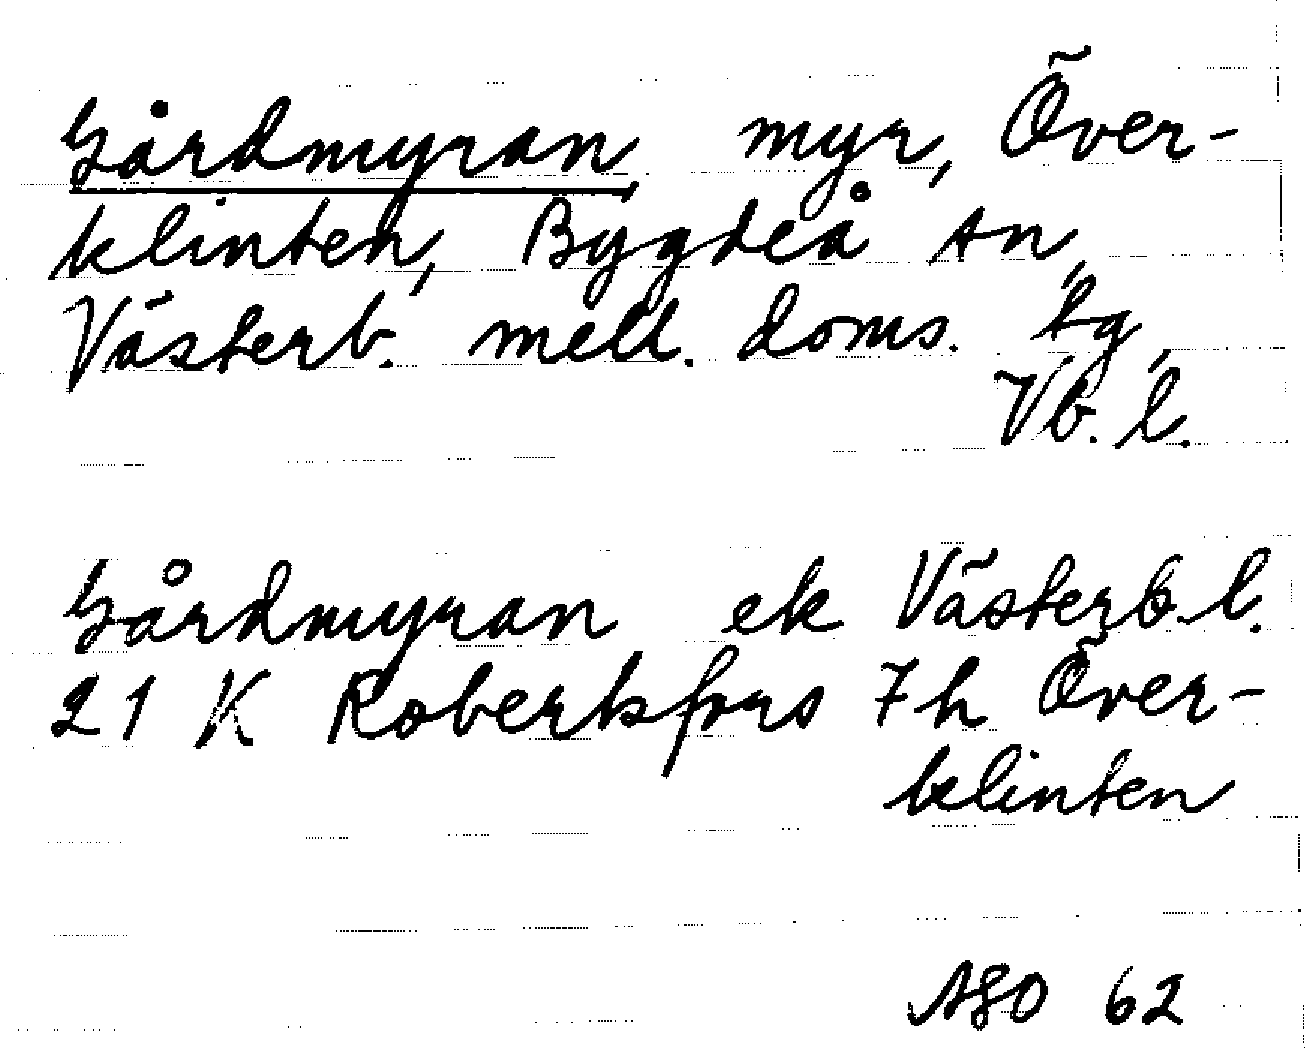 Gårdmyran myr, Över-
klinten, Bygdeå sn,
Västerb. mell. doms. tg,
Vb. l.
Gårdmyran ek Västerb. l.
21 K Robertsfors 7h Över-
klinten
ASO 62